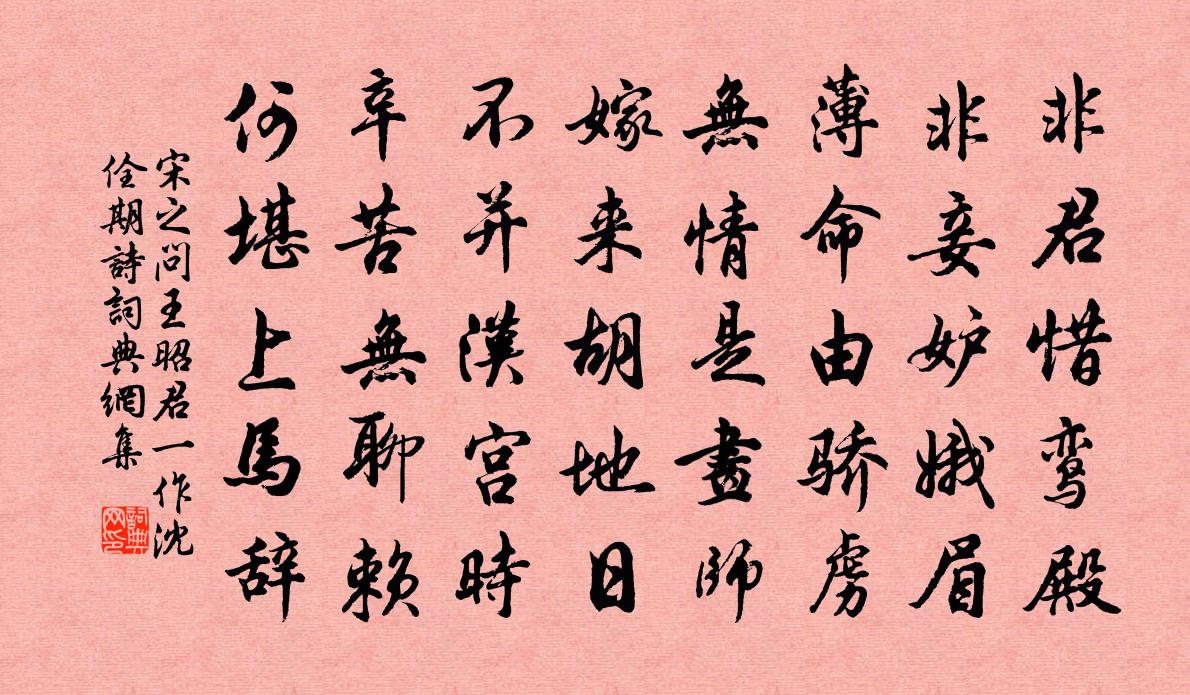 非君惜鸾殿
非妾妒娥眉
薄命由骄虏
無情是畫师
嫁来胡地日
不并漢宫時
辛苦無聊赖
何堪上馬辞
宋之问王昭君一作沈
佺期詩詞典網集
詞典
网印